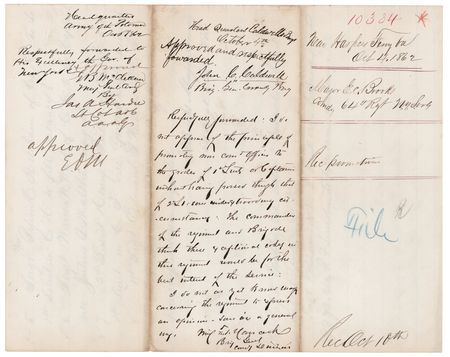 Headquarters
Army of the Potomac
Oct 1862
Respectfully forwarded to
His Excellency the Gov. of
New York
G B McClellan
Maj Gen Comg
By
Jas A Hardie
Lt Col ADC
approved
EDM
Head Quarters Caldwell's Brig
October 4th
Approved and respectfully
forwarded.
John C. Caldwell
Brig. Gen. Comdg Brig
Respectfully forwarded: I do
not approve of the principle of
promoting non com'd officers to
the grades of 1st Lieut or Captain
without having passed through that
of 2d Lt: unless under extraordinary cir-
cumstances: The commanders
of the regiment and Brigade
think these exceptional cases in
this regiment would be for the
best interest of the service:
I do not as yet know enough
concerning the regiment to express
an opinion - save in a general
way.
Winf. S. Hancock
Brig Genl
comdg Division
10334
Near Harpers Ferry Va
Oct 4, 1862
Major E. C. Brooks
Comdg 64th Regt N.Y. Vols
Rec promotions
File
Rec Oct 18th